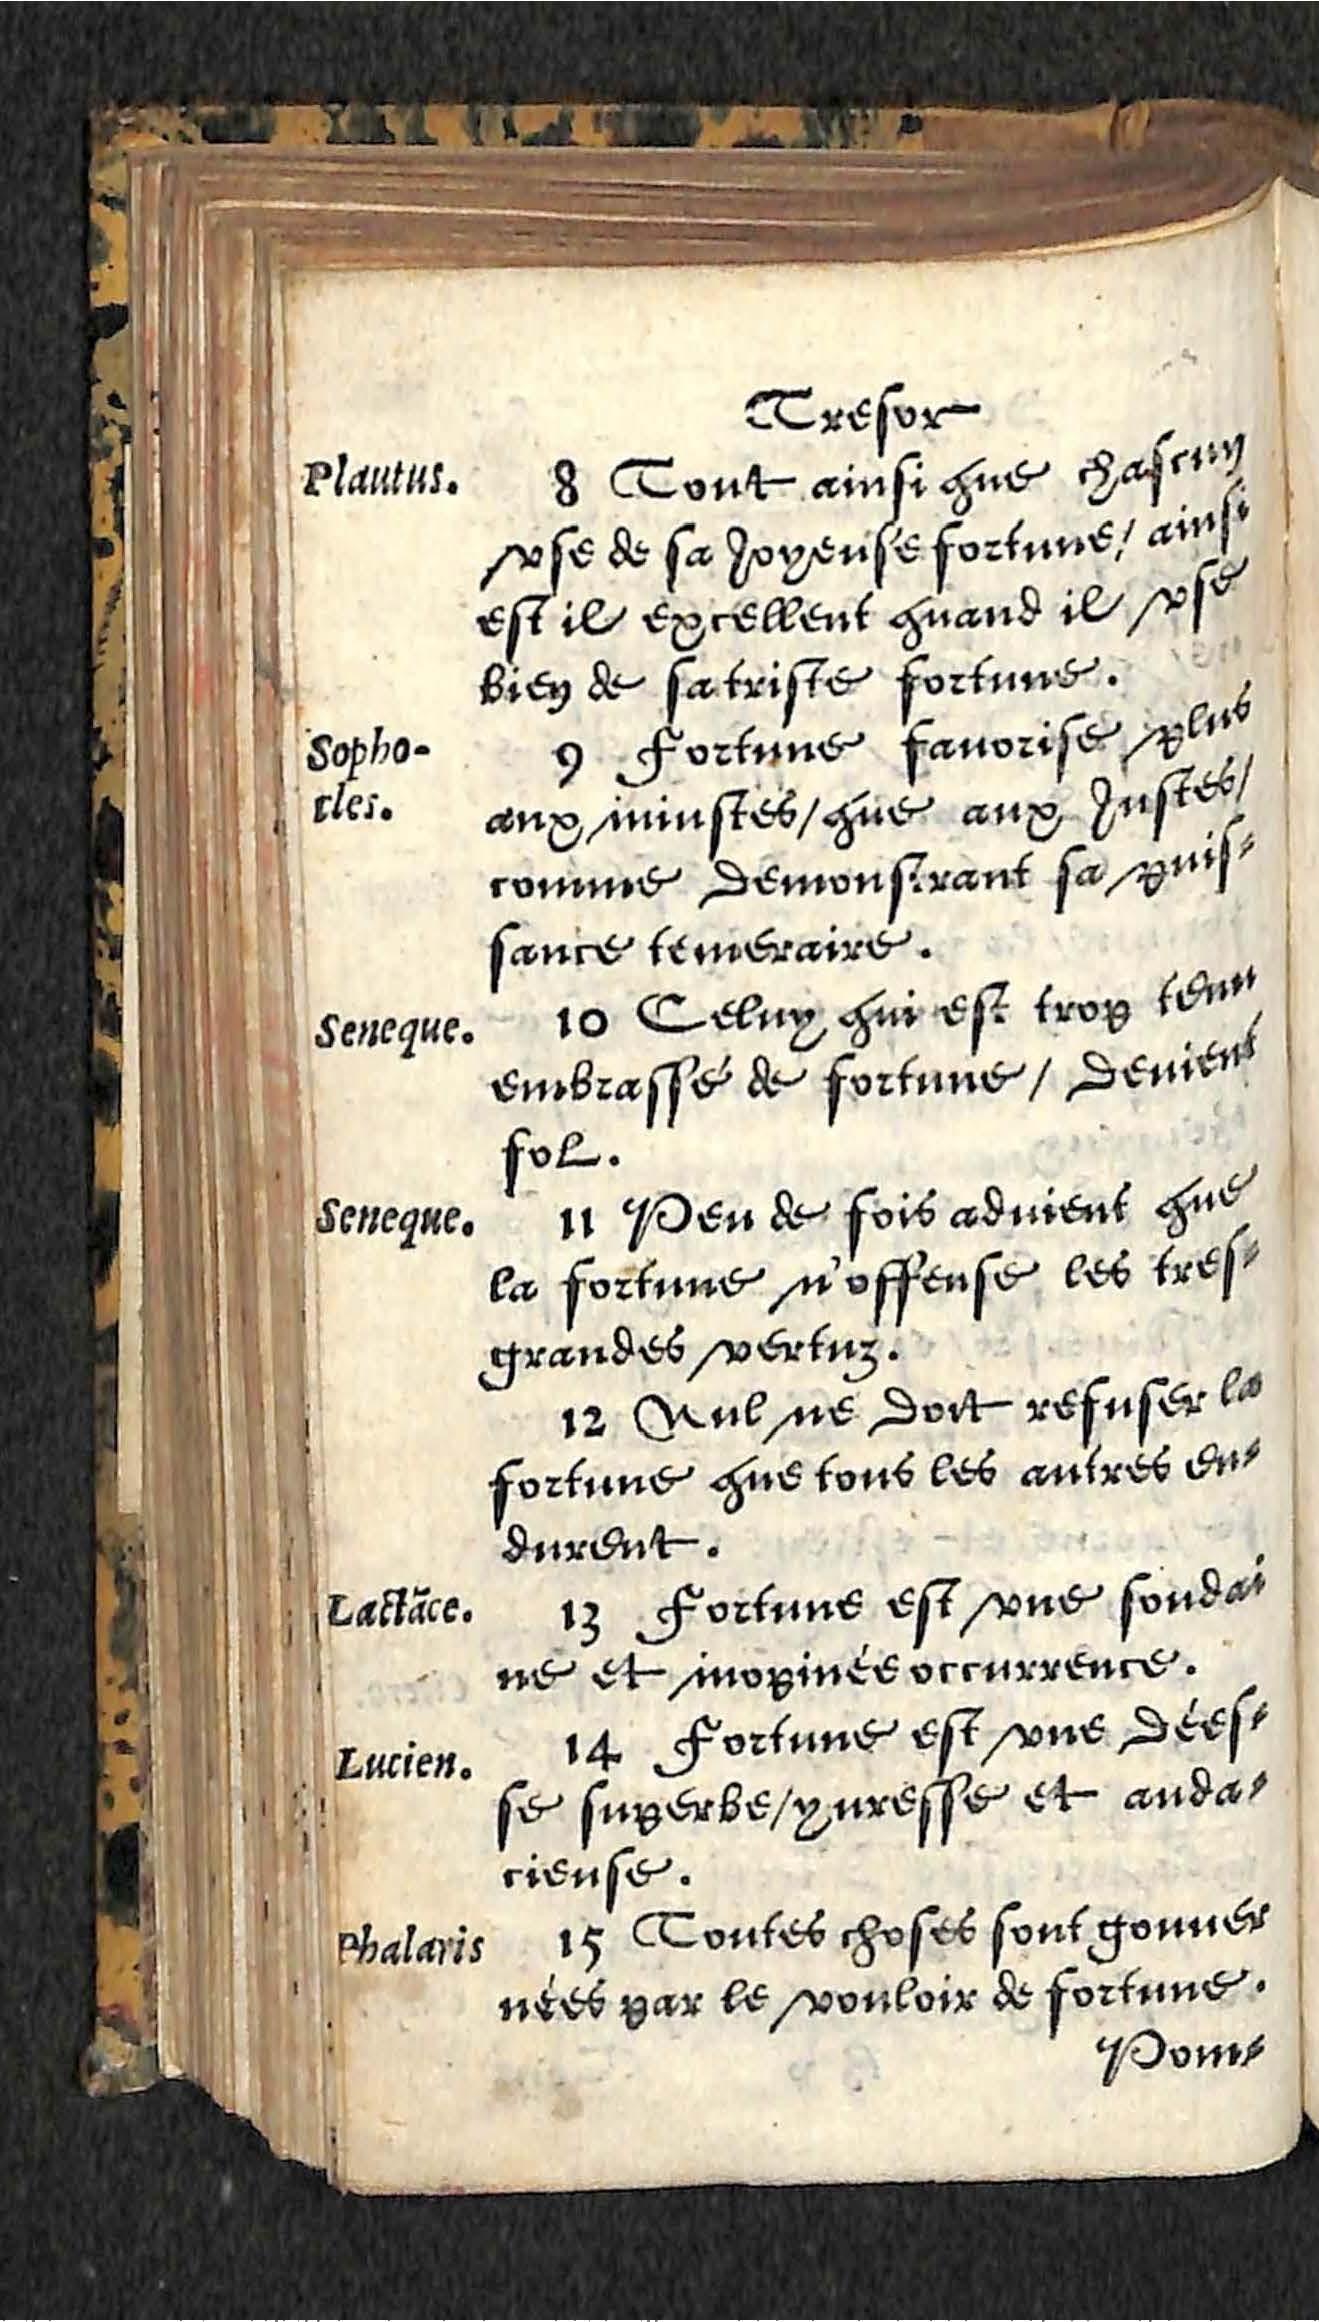 Tresor
Plautus. 8 Tout ainsi que chascun
vse de sa Joyeuse fortune/ ainsi
est il excellent quand il vse
bien de sa triste fortune.
Sopho- 9 Fortune fauorise plus
cles. aux iniustes/ que aux Justes/
comme demonstrant sa puis-
sance temeraire.
Seneque. 10 Celuy qui est trop tenu
embrassé de fortune/ deuient
fol.
Seneque. 11 Peu de fois aduient que
la fortune n'offense les tres-
grandes vertuz.
12 Nul ne doit refuser la
fortune que tous les autres en-
durent.
Lactãce. 13 Fortune est vne soudai
ne et inopinée occurrence.
Lucien. 14 Fortune est vne dées-
se superbe/ yuresse et auda-
cieuse.
Phalaris 15 Toutes choses sont gouuer
nées par le vouloir de fortune.
Pom-